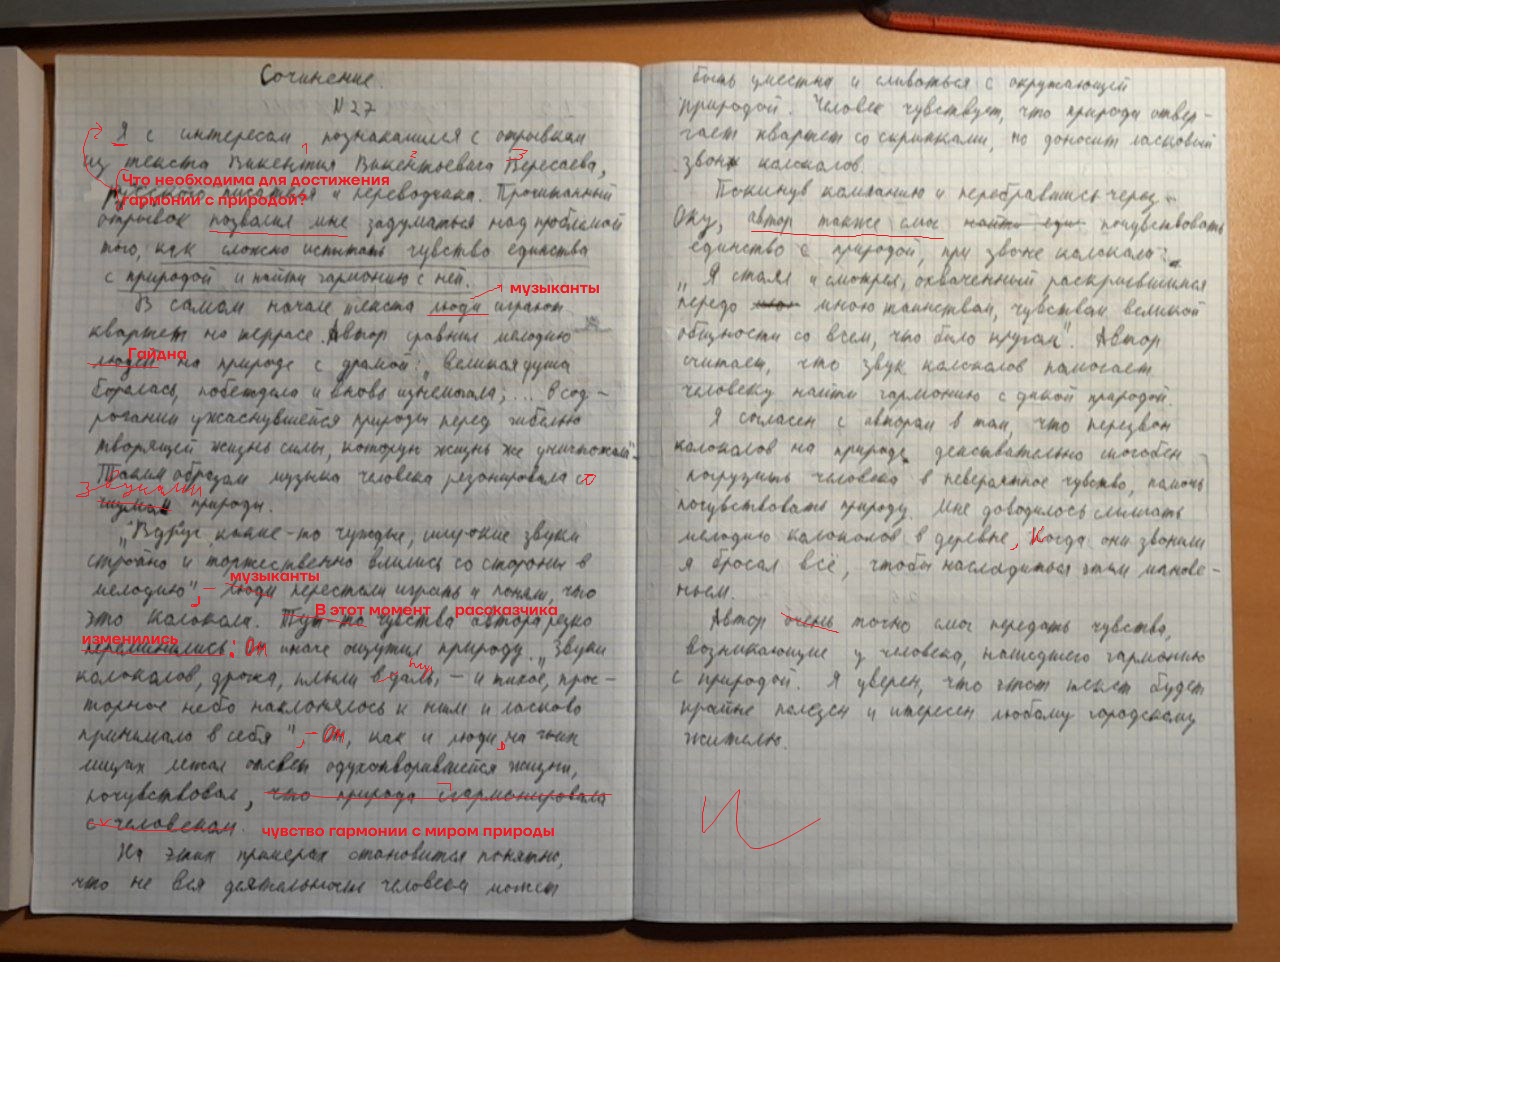 Сочинение.
N 27
Я с интересом познакомился с отрывком
из текста Викентия Викентьевича Вересаева,
1 2 3
Что необходимо для достижения
гармонии с природой?
русского писателя и переводчика. Прочитанный
отрывок позволил мне задуматься над проблемой
того, как сложно испытать чувство единства
с природой и найти гармонию с ней.
музыканты
В самом начале текста люди играют
квартет на террасе. Автор сравнил мелодию
Гайдна
людей на природе с драмой: „Великая душа
боролась, побеждала и вновь изнемогала; ... в сод-
рогании ужаснувшейся природы перед гибелью
творящей жизнь силы, которую жизнь же уничтожает".
Таким образом музыка человека резонировала со
звуками
природы.
„Вдруг какие-то чуждые, широкие звуки
стройно и торжественно влились со стороны в
музыканты
мелодию", – люди перестали играть и поняли, что
В этот момент рассказчика
это колокола. Тут-то чувства автора резко
изменились
переменились: Он иначе ощутил природу. „Звуки
колоколов, дрожа, плыли вдаль, – и тихое, прос-
торное небо наклонялось к ним и ласково
принимало в себя", – Он, как и люди, на чьих
лицах лежал отсвет одухотворившейся жизни,
почувствовал, что природа гармонировала
с человеком.
чувство гармонии с миром природы
На этих примерах становится понятно,
что не вся деятельность человека может
быть уместна и сливаться с окружающей
природой. Человек чувствует, что природа отвер-
гает квартет со скрипками, но доносит ласковый
звон колоколов.
Покинув компанию и перебравшись через
Оку, автор также смог найти еди почувствовать
единство с природой, при звоне колокола:
„Я стоял и смотрел, охваченный раскрывшимся
передо мною таинством, чувством великой
общности со всем, что было кругом". Автор
считает, что звук колоколов помогает
человеку найти гармонию с дикой природой.
Я согласен с автором в том, что перезвон
колоколов на природе действательно способен
погрузить человека в невероятное чувство, помочь
почувствовать природу. Мне доводилось слышать
мелодию колоколов в деревне, Когда они звонили
я бросал всё, чтобы насладиться этим мгнове-
ньем.
Автор очень точно смог передать чувства,
возникающие у человека, нашедшего гармонию
с природой. Я уверен, что этот текст будет
крайне полезен и итересен любому городскому
жителю.